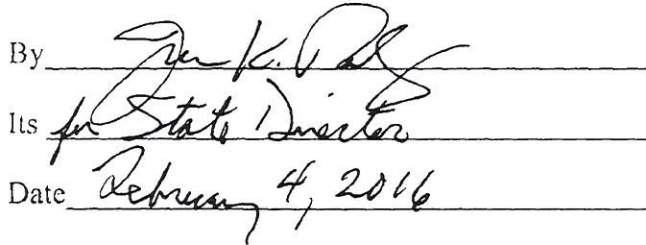 By K.
Its for State Director
Date February 4, 2016